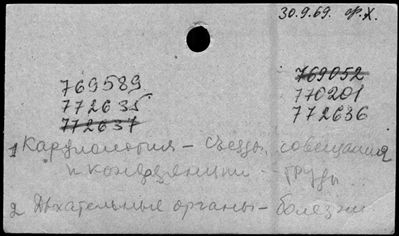 30.9.69. Ф.Х.
769589
772635
772637
769052
770201
772636
1 Кардиология – Съезды, совещания
и конференции – труды.
2 Дыхательные органы – болезни